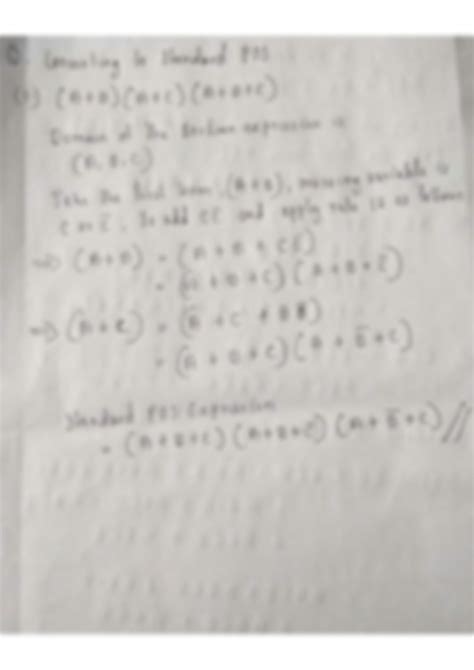 Converting to Standard POS
(1) (A+B)(A+C)(A+B+C)
Domain of the Boolean expression is
(A, B, C)
Take the first term, (A+B), missing variable is
C or C̅. So add CC̅ and apply rule 12 as follows
=> (A+B) = (A + B + CC̅)
= (A + B + C)(A + B + C̅)
=> (A+C) = (A + C + BB̅)
= (A + B + C)(A + B̅ + C)
Standard POS Expression
= (A+B+C)(A+B+C̅)(A+B̅+C)//